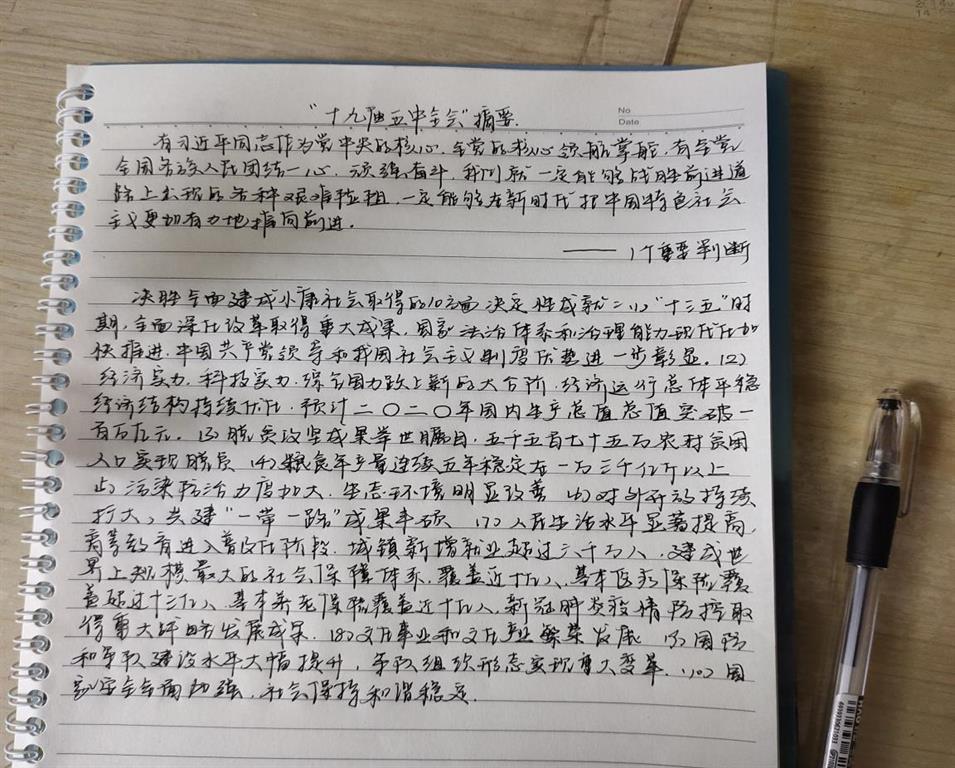 "十九届五中全会"摘要.
No
Date
有习近平同志作为党中央的核心、全党的核心领航掌舵,有全党
全国各族人民团结一心、顽强奋斗,我们就一定能够战胜前进道
路上出现的各种艰难险阻,一定能够在新时代把中国特色社会
主义更加有力地推向前进。
——1个重要判断
决胜全面建成小康社会取得的10方面决定性成就:(1)"十三五"时
期,全面深化改革取得重大成果,国家法治体系和治理能力现代化加
快推进,中国共产党领导和我国社会主义制度优势进一步彰显。(2)
经济实力,科技实力,综合国力跃上新的大台阶,经济运行总体平稳
经济结构持续优化,预计二〇二〇年国内生产总值总值突破一
百万亿元。(3)脱贫攻坚成果举世瞩目,五千五百七十五万农村贫困
人口实现脱贫 (4)粮食年产量连续五年稳定在一万三千亿斤以上
(5)污染防治力度加大,生态环境明显改善 (6)对外开放持续
扩大,共建"一带一路"成果丰硕 (7)人民生活水平显著提高,
高等教育进入普及化阶段,城镇新增就业超过六千万人,建成世
界上规模最大的社会保障体系,覆盖近十亿人,基本医疗保险覆
盖超过十三亿人,基本养老保险覆盖近十亿人,新冠肺炎疫情防控取
得重大战略发展成果,(8)文化事业和文化产业繁荣发展 (9)国防
和军队建设水平大幅提升,军队组织形态实现重大变革,(10)国
家安全全面加强,社会保持和谐稳定.